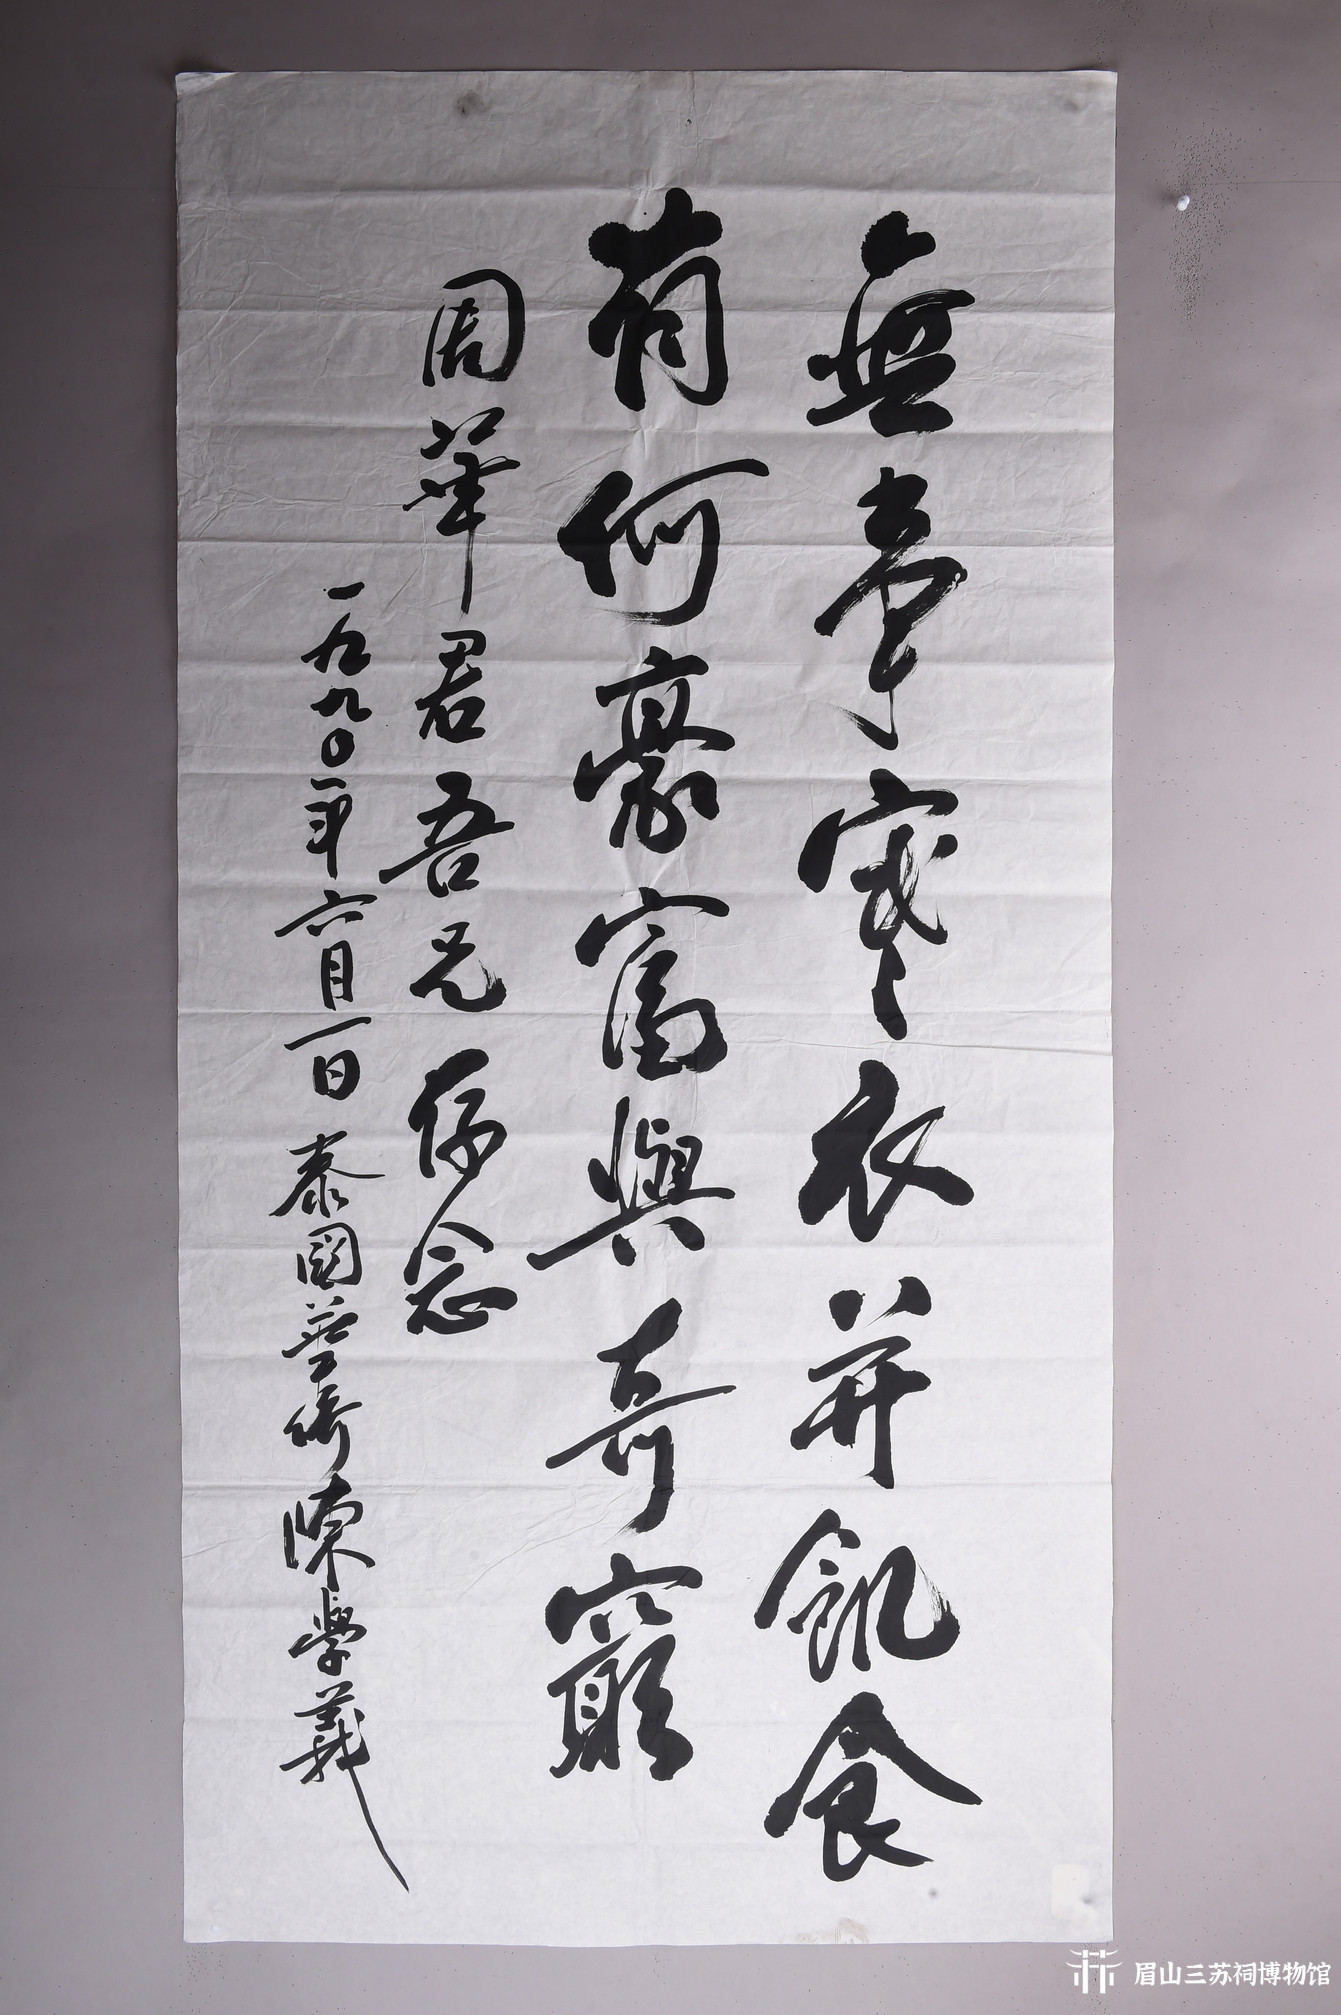 無事寒衣并飢食
有何豪富與奇窮
周華君吾兄 存念
一九九〇年六月一日 泰國華僑陳學義
眉山三苏祠博物馆